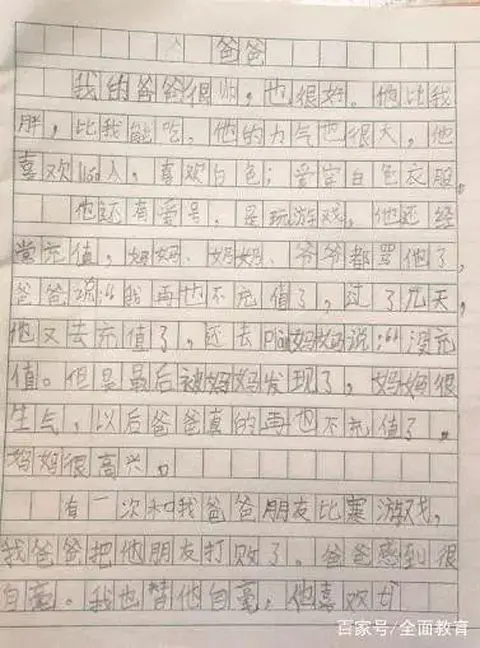 爸爸
我的爸爸很帅，也很好。他比我
胖，比我能吃，他的力气也很大，他
喜欢 人，喜欢白色；爱穿白色衣服。
他还有爱号，是玩游戏，他还经
常充值，妈妈、奶奶、爷爷都骂他了，
爸爸说：“我再也不充值了，过了几天，
他又去充值了，还去pian妈妈说：“没充
值。但是最后被妈妈发现了，妈妈很
生气，以后爸爸真的再也不充值了。
妈妈很高兴。
有一次和我爸爸朋友比赛游戏，
我爸爸把他朋友打败了。爸爸感到很
自毫。我也替他自毫，他喜欢
百家号/全面教育